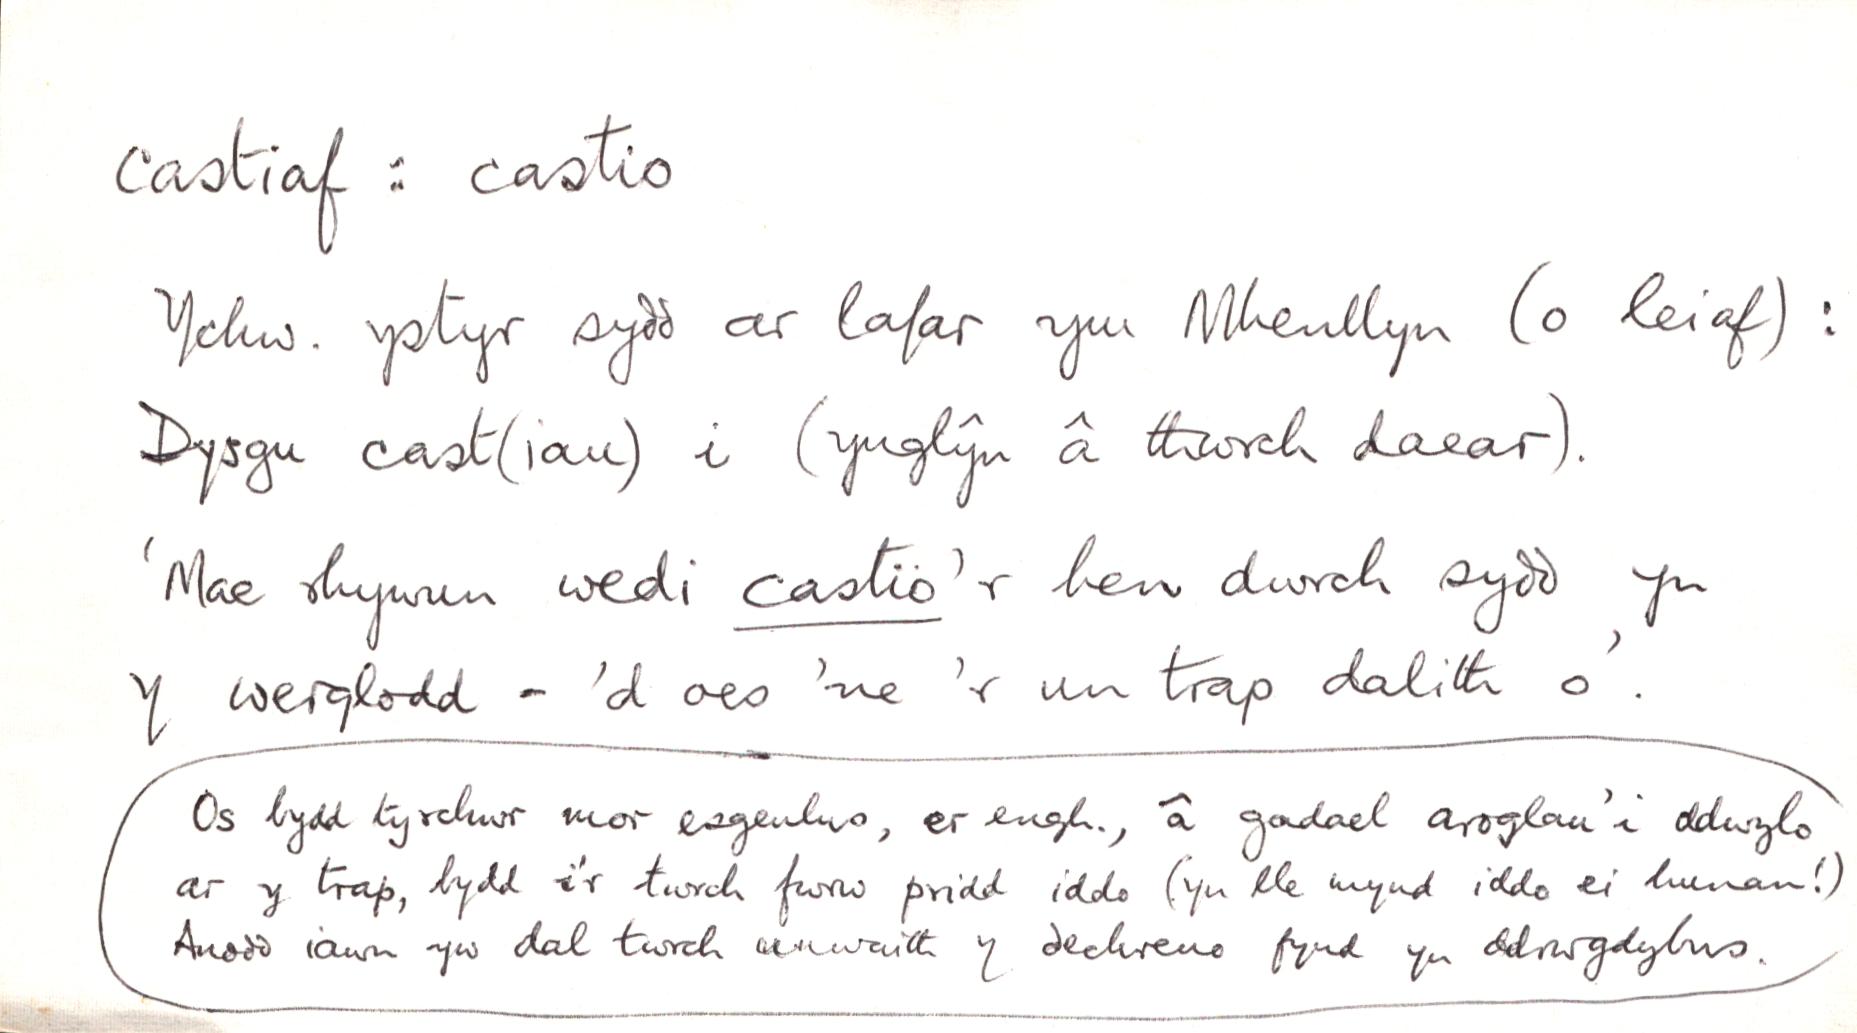 castiaf : castio
Ychw. ystyr syδδ ar lafar ym Mhenllyn (o leiaf) :
Dysgu cast(iau) i (ynglŷn â thwrch daear).
'Mae rhywun wedi castio'r hen dwrch syδδ yn
y weirglodd - 'd oes 'ne 'r un trap dalith o'.
Os bydd tyrchwr mor esgeulus, er engh., â gadael aroglau'i ddwylo
ar y trap, bydd i'r twrch fwrw pridd iddo (yn lle mynd iddo ei hunan!)
Anoδδ iawn yw dal twrch unwaith y δechreuo fynd yn ddrwgdybus.